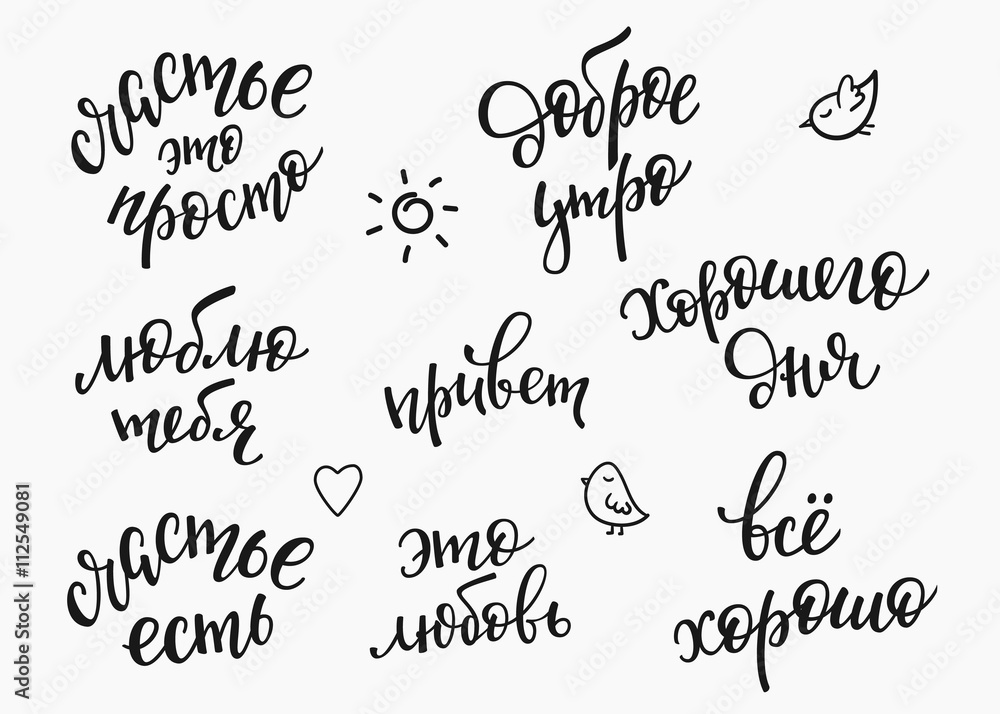 счастье
это
просто
доброе
утро
хорошего
дня
люблю
тебя
привет
всё
хорошо
счастье
есть
это
любовь
Adobe Stock | #112549081